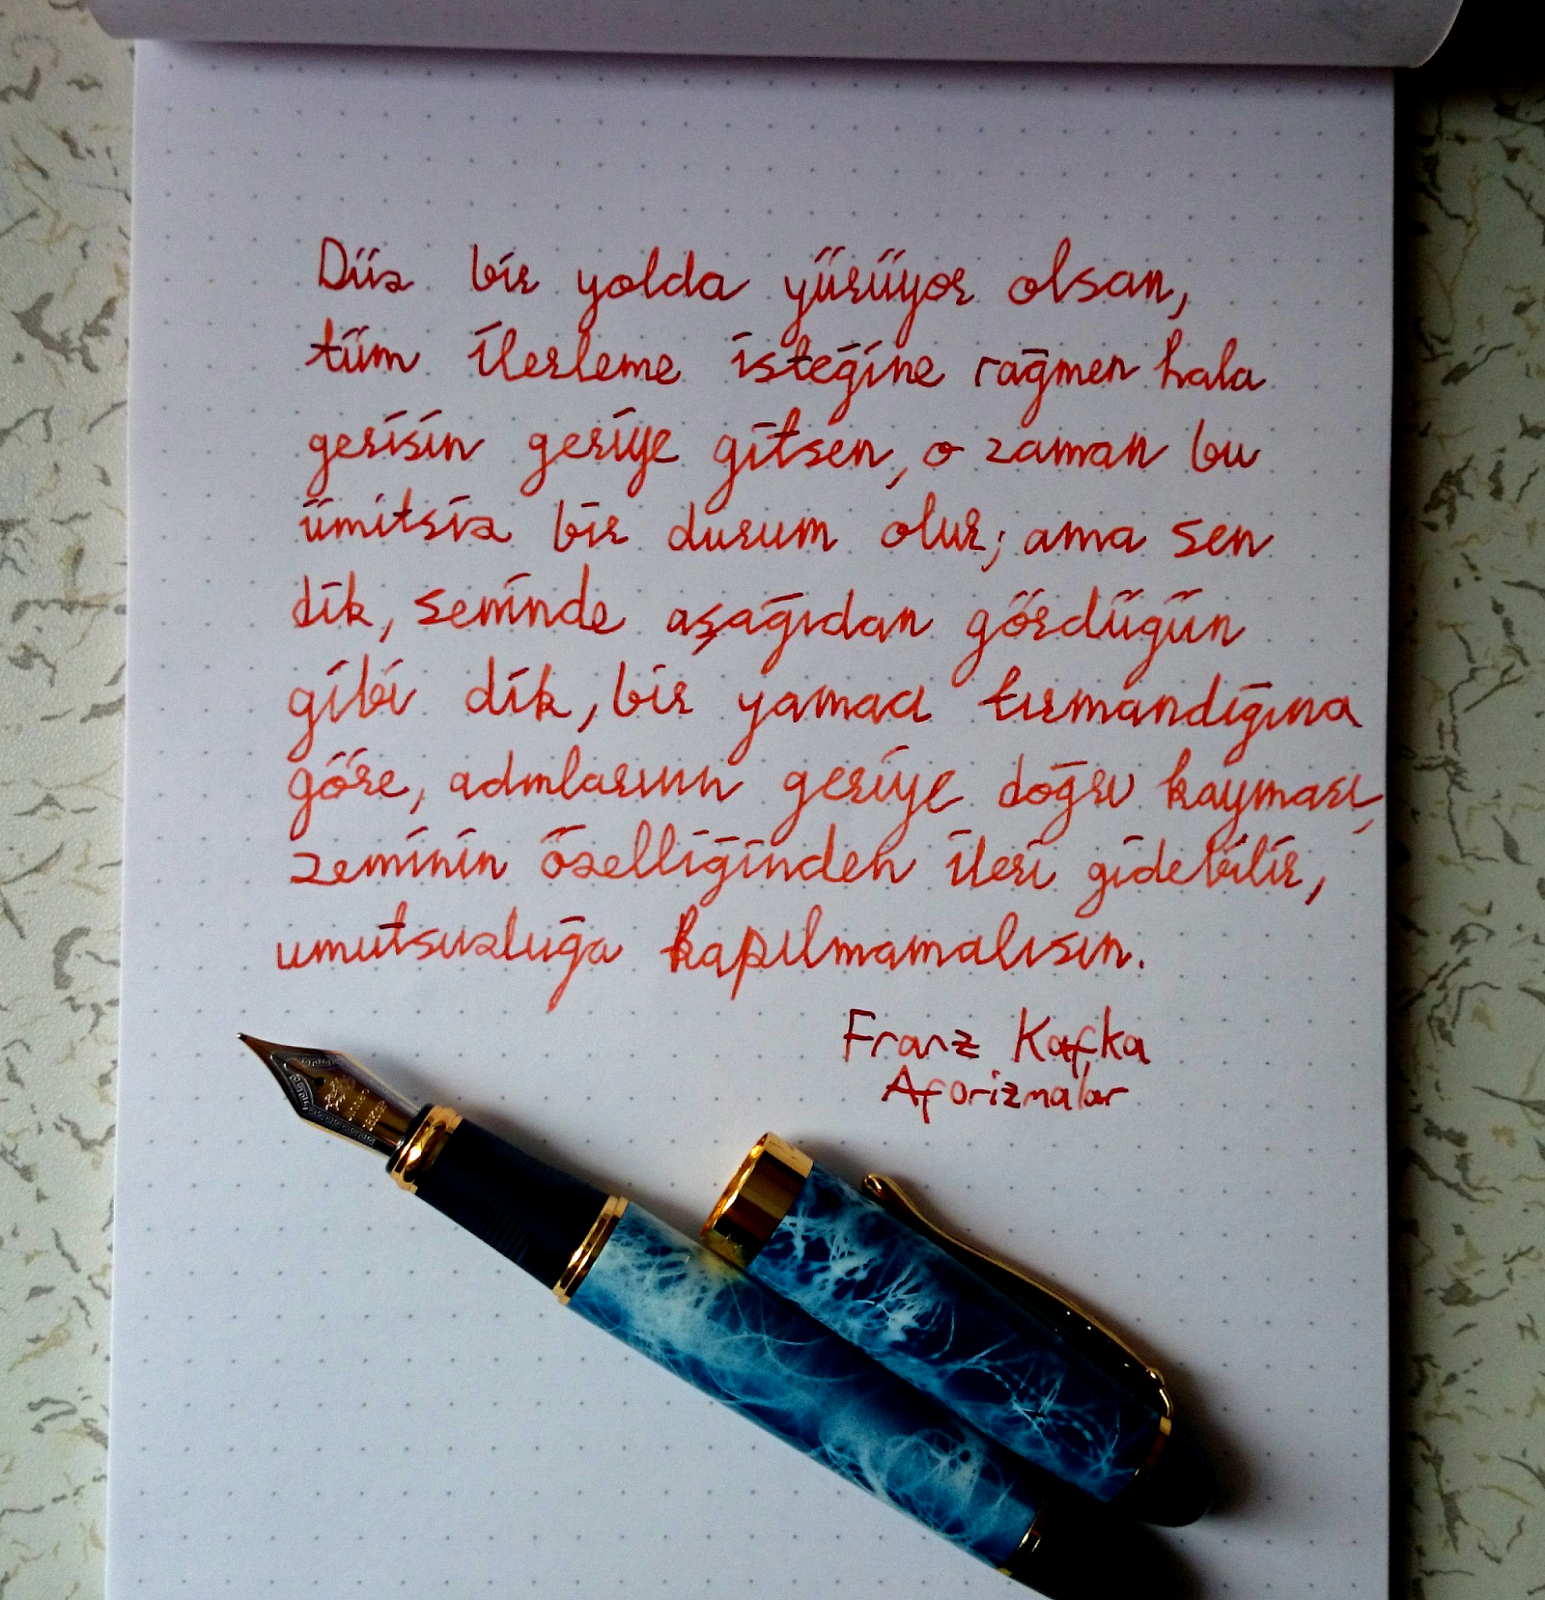 Düz bir yolda yürüyor olsan,
tüm ilerleme isteğine rağmen hala
gerisin geriye gitsen, o zaman bu
ümitsiz bir durum olur; ama sen
dik, seninde aşağıdan gördüğün
gibi dik, bir yamacı tırmandığına
göre, adımlarının geriye doğru kayması,
zeminin özelliğinden ileri gidebilir,
umutsuzluğa kapılmamalısın.
Franz Kafka
Aforizmalar